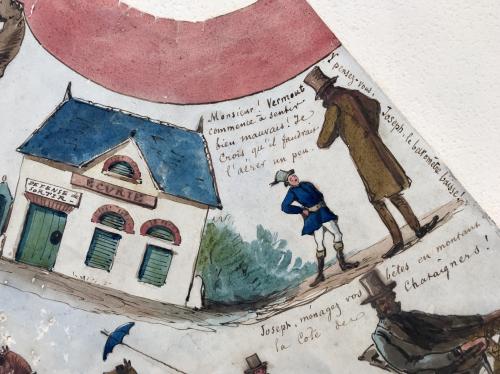 Monsieur! Vermout
commence à sentir
bien mauvais! Je
Crois, qu'il faudrait
l'aérer un peu.
pensez-vous,
Joseph, le baromètre baisse!
ÉCURIE
DEFENSE de
SORTIR
Joseph, ménagez vos bêtes en montant
la Côte des Chataigners!